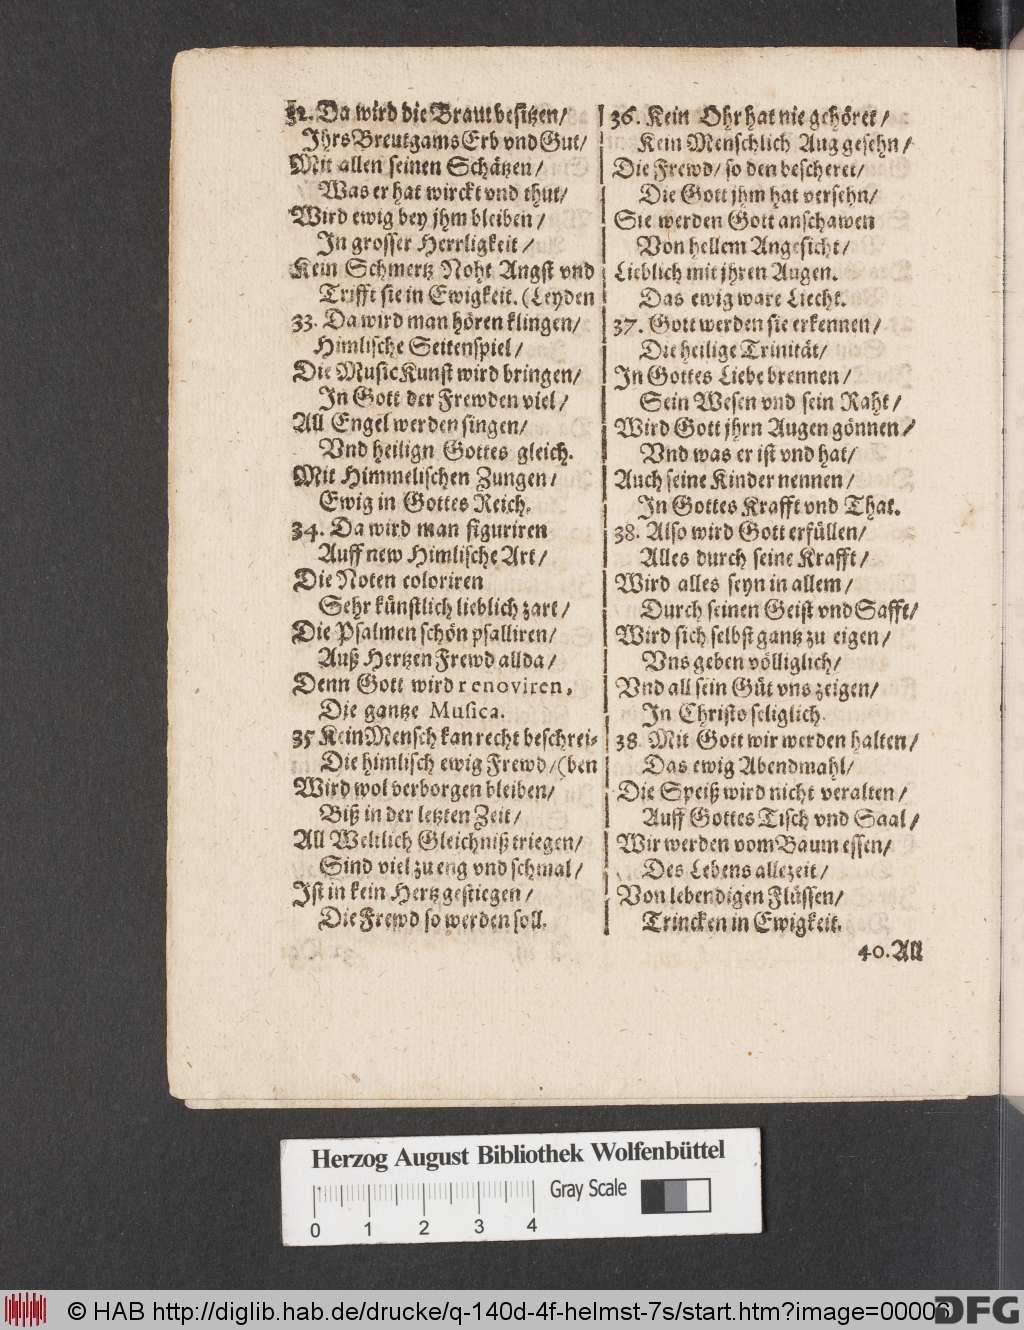 32. Da wird die Braut besitzen/
Jhrs Breutgams Erb vnd Gut/
Mit allen seinen Schätzen/
Was er hat wirckt vnd thut/
Wird ewig bey jhm bleiben/
In grosser Herrligkeit/
Kein Schmertz Noht Angst vnd
Trifft sie in Ewigkeit. (Leyden
33. Da wird man hören klingen/
Himlische Seitenspiel/
Die Music Kunst wird bringen/
In Gott der Frewden viel/
All Engel werden singen/
Vnd heilign Gottes gleich.
Mit Himmelischen Zungen/
Ewig in Gottes Reich.
34. Da wird man figuriren
Auff new Himlische Art/
Die Noten coloriren
Sehr künstlich lieblich zart/
Die Psalmen schön psalliren/
Auß Hertzen Frewd allda/
Denn Gott wird renoviren,
Die gantze Musica.
35 Kein Mensch kan recht beschrei-
Die himlisch ewig Frewd/(ben
Wird wol verborgen bleiben/
Biß in der letzten Zeit/
All Weltlich Gleichniß triegen/
Sind viel zu eng vnd schmal/
Ist in kein Hertz gestiegen/
Die Frewd so werden soll.
36. Kein Ohr hat nie gehöret/
Kein Menschlich Aug gesehn/
Die Frewd/ so den bescheret/
Die Gott jhm hat versehn/
Sie werden Gott anschawen
Von hellem Angesicht/
Lieblich mit jhren Augen.
Das ewig ware Liecht.
37. Gott werden sie erkennen/
Die heilige Trinität/
In Gottes Liebe brennen/
Sein Wesen vnd sein Raht/
Wird Gott jhrn Augen gönnen/
Vnd was er ist vnd hat/
Auch seine Kinder nennen/
In Gottes Krafft vnd That.
38. Also wird Gott erfüllen/
Alles durch seine Krafft/
Wird alles seyn in allem/
Durch seinen Geist vnd Safft/
Wird sich selbst gantz zu eigen/
Vns geben völliglich/
Vnd all sein Güt vns zeigen/
In Christo seliglich.
38. Mit Gott wir werden halten/
Das ewig Abendmahl/
Die Speiß wird nicht veralten/
Auff Gottes Tisch vnd Saal/
Wir werden vom Baum essen/
Des Lebens allezeit/
Von lebendigen Flüssen/
Trincken in Ewigkeit.
40. All
Herzog August Bibliothek Wolfenbüttel
Gray Scale
0 1 2 3 4
© HAB http://diglib.hab.de/drucke/q-140d-4f-helmst-7s/start.htm?image=00006
DFG